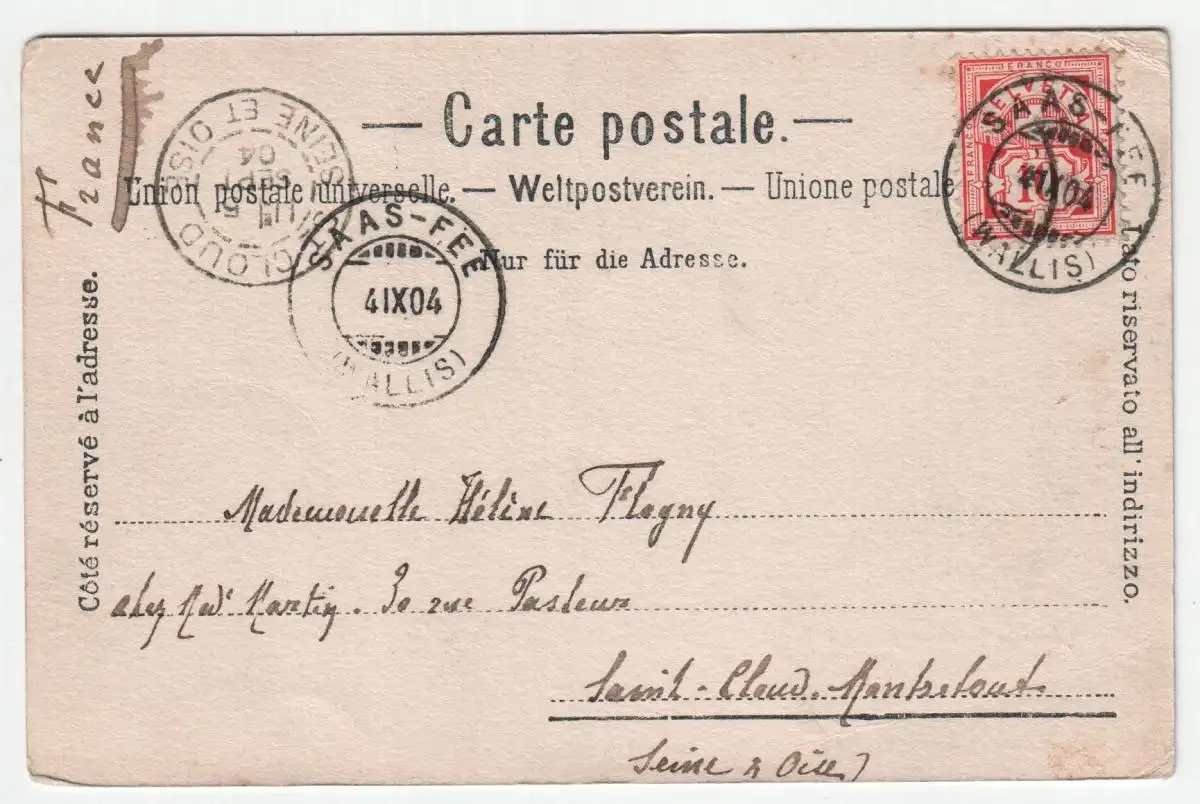 France
— Carte postale. —
Union postale universelle. — Weltpostverein. — Unione postale
Nur für die Adresse.
Côté réservé à l'adresse.
Lato riservato all' indirizzo.
FRANCO
HELVETIA
FRANCO
10
SAAS-FEE
4 IX 04
(WALLIS)
SAAS-FEE
4 IX 04
(WALLIS)
CLOUD
SEINE ET OISE
5
SEPT
04
Mademoiselle Hélène Flogny
chez Made Martin. 30 rue Pasteur
Saint-Cloud. Montretout.
Seine & Oise)